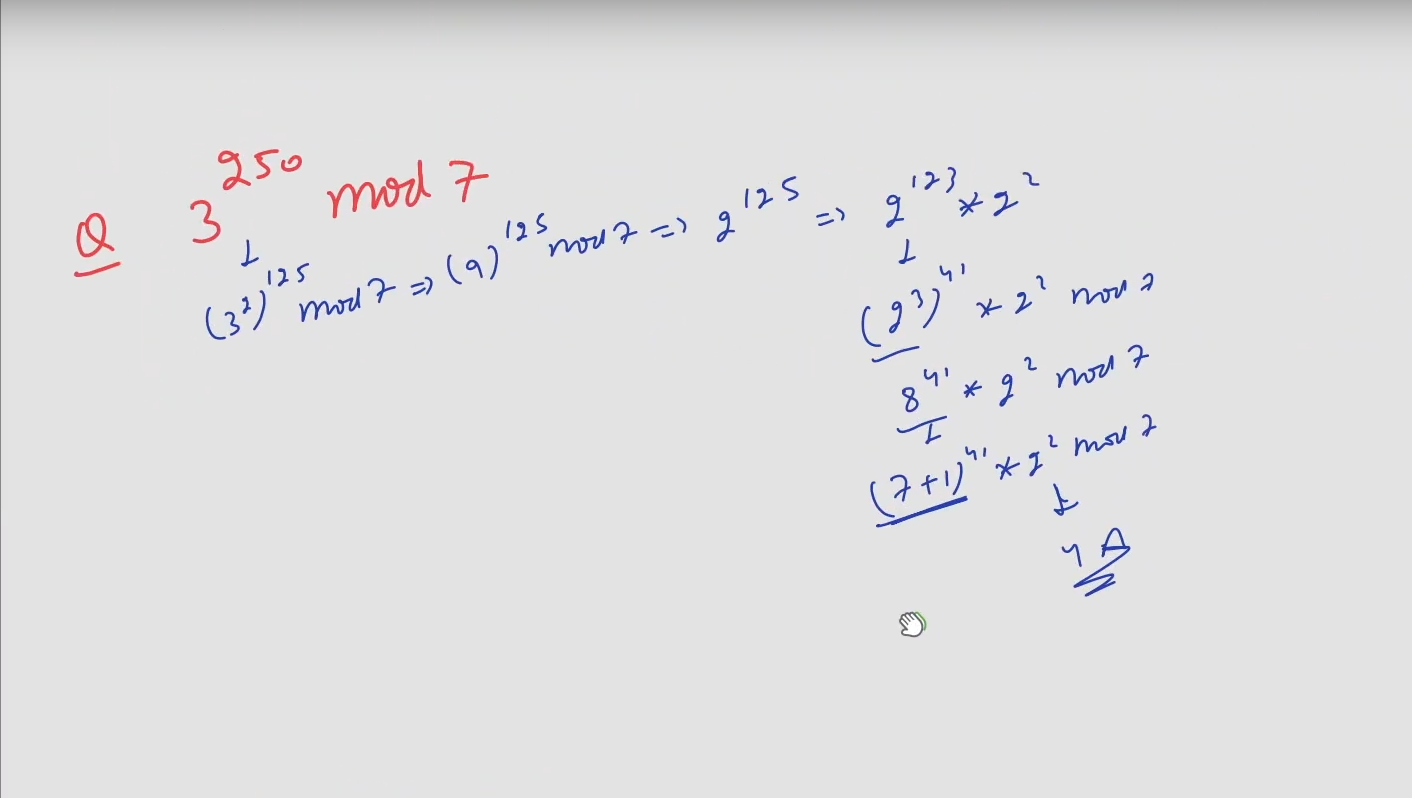 Q 3^250 mod 7
(3^2)^125 mod 7 => (9)^125 mod 7 => 2^125 => 2^123 * 2^2
(2^3)^41 * 2^2 mod 7
8^41 * 2^2 mod 7
(7+1)^41 * 2^2 mod 7
4 A